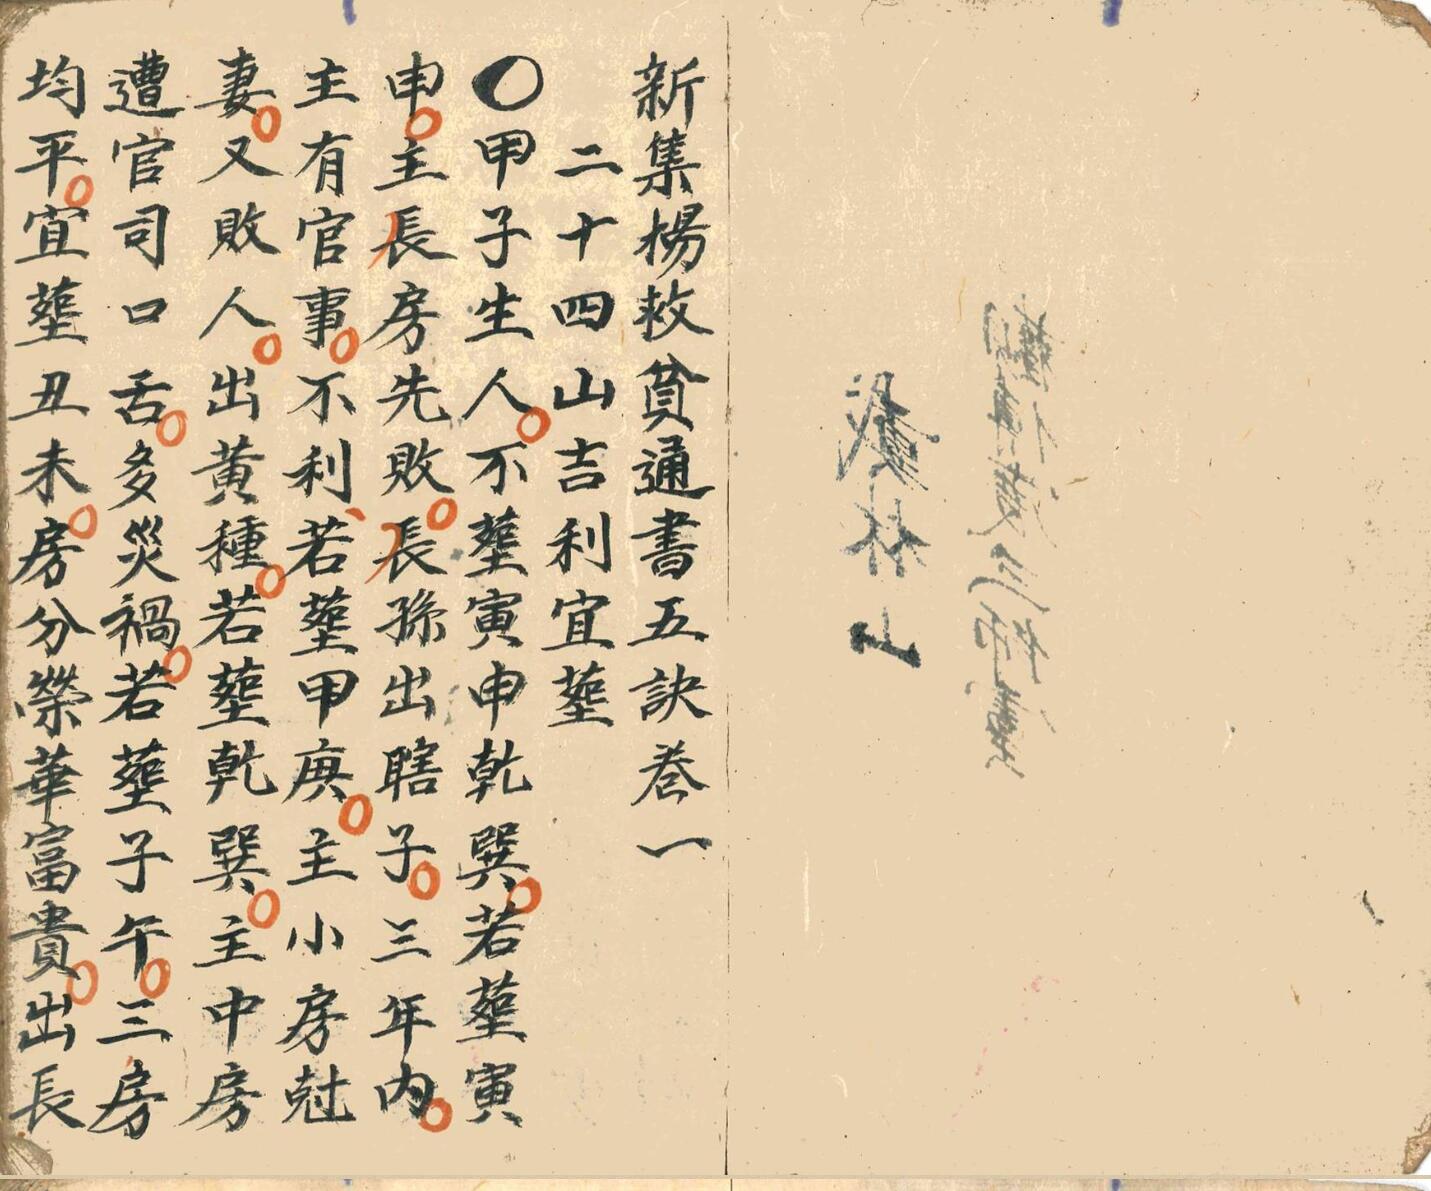 新集楊救貧通書五訣卷一
二十四山吉利宜塟
〇甲子生人不塟寅申乾巽若塟寅
申主長房先敗長孫出瞎子三年內
主有官事不利若塟甲庚主小房尅
妻又敗人出黃種若塟乾巽主中房
遭官司口舌多災禍若塟子午三房
均平宜塟丑未房分榮華富貴出長